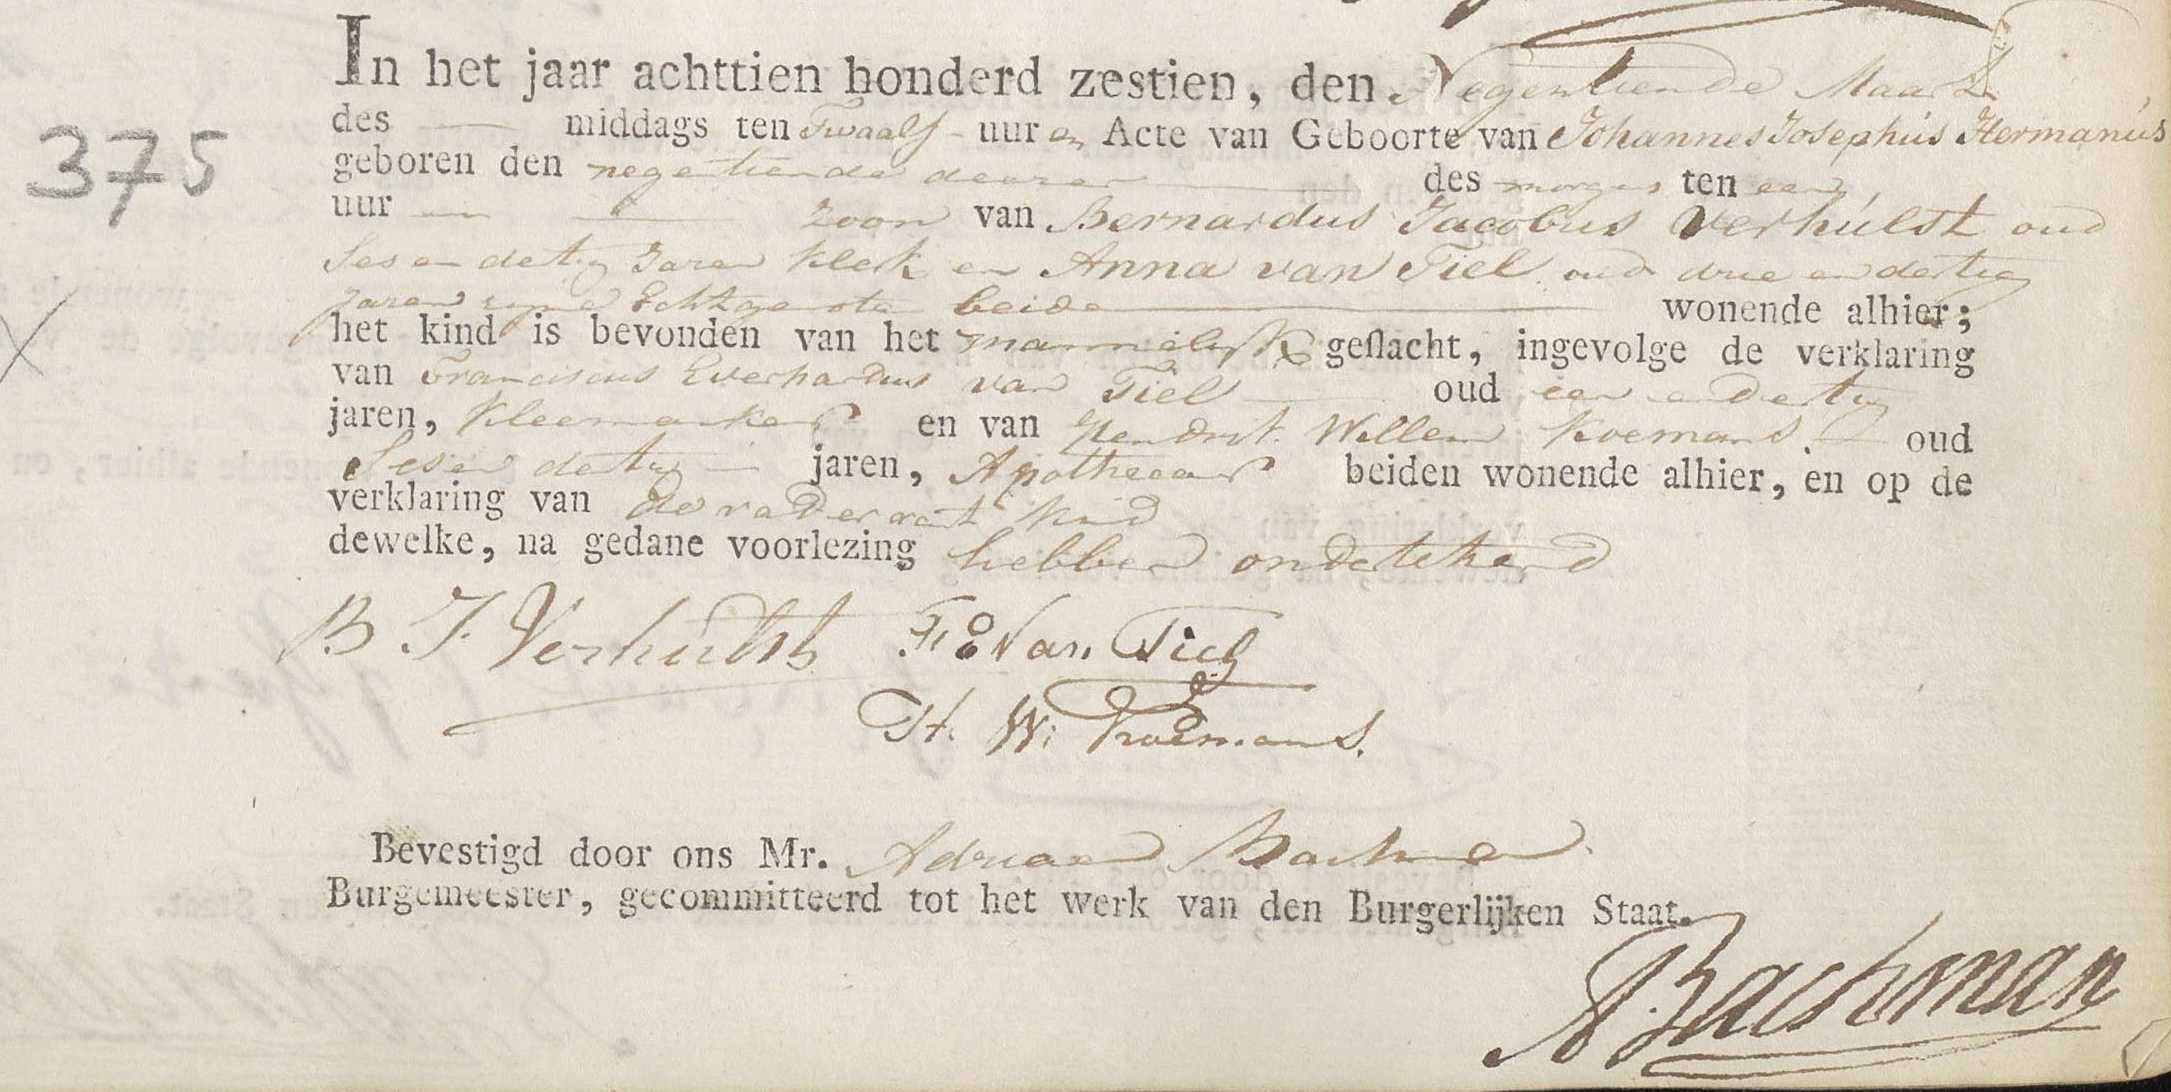 In het jaar achttien honderd zestien, den Negentiende Maart
375
des — middags ten Twaalf uur en Acte van Geboorte van Johannes Josephus Hermanus
geboren den negentiende dezer — des morgens ten een
uur — — zoon van Bernardus Jacobus Verhulst oud
Ses en dertig Jaren klerk en Anna van Tiel oud drie en dertig
Jaren zijne Echtgenote beide — wonende alhier;
het kind is bevonden van het mannelyk geslacht, ingevolge de verklaring
van Franciscus Everhardus van Tiel — oud een en dertig
jaren, kleermaker en van Hendrik Willem Koemans — oud
Ses en dertig — jaren, Apothecar beiden wonende alhier, en op de
verklaring van de vader van't kind
dewelke, na gedane voorlezing hebben ondertekend
B J. Verhulst F: E Van Tiel
H. W: Koemans.
Bevestigd door ons Mr. Adriaan Bachman
Burgemeester, gecommitteerd tot het werk van den Burgerlijken Staat.
A Bachman